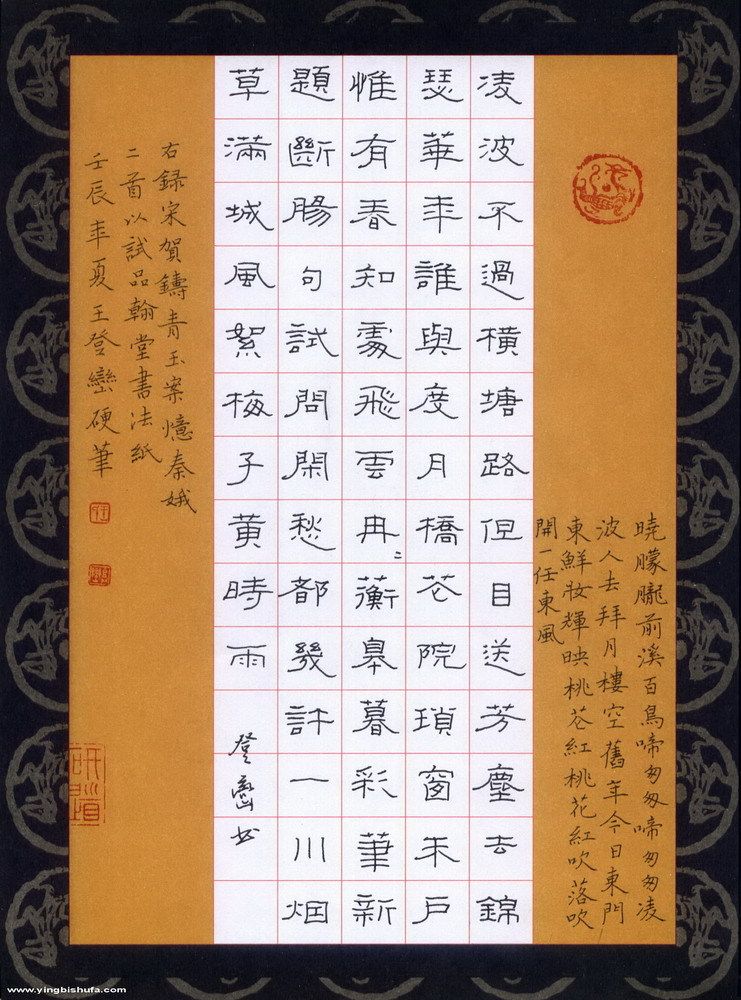 曉朦朧前溪百鳥啼匆匆啼匆匆凌
波人去拜月樓空舊年今日東門
東鮮妝輝映桃花紅桃花紅吹落吹
開一任東風
凌波不過橫塘路但目送芳塵去錦
瑟華年誰與度月橋花院瑣窗朱戶
惟有春知處飛雲冉〻蘅皋暮彩筆新
題斷腸句試問閑愁都幾許一川烟
草滿城風絮梅子黃時雨
登巒书
右録宋賀鑄青玉案憶秦娥
二首以試品翰堂書法紙
壬辰年夏王登巒硬筆
www.yingbishufa.com